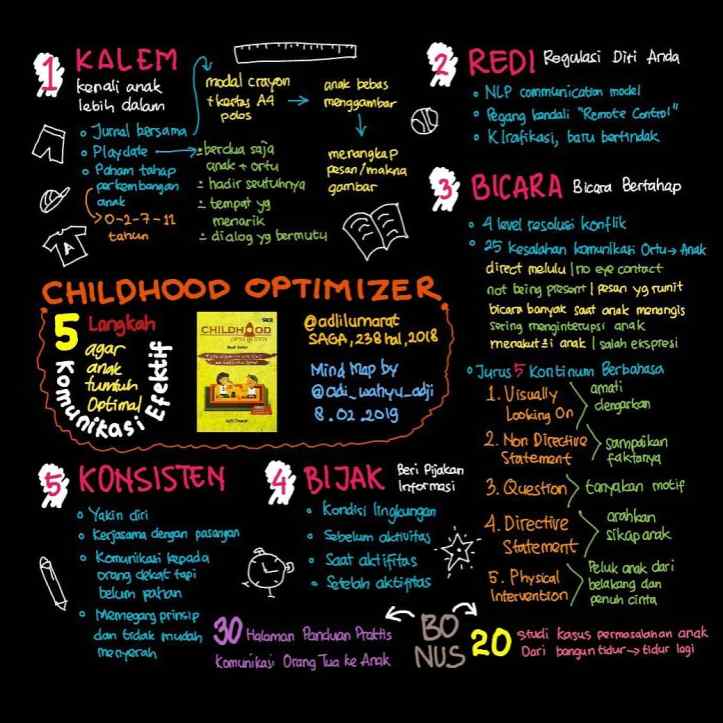 1 KALEM
kenali anak
lebih dalam
• Jurnal bersama
• Playdate
• Paham tahap
perkembangan
anak
0-2-7-11
tahun
modal crayon
+ kertas A4
polos
anak bebas
menggambar
menangkap
pesan/makna
gambar
berdua saja
anak + ortu
hadir seutuhnya
tempat yg
menarik
dialog yg bermutu
A
2 REDI Regulasi Diri Anda
• NLP communication model
• Pegang kendali "Remote Control"
• Klrafikasi, baru bertindak
3 BICARA Bicara Bertahap
• 4 level resolusi konflik
• 25 kesalahan komunikasi Ortu → Anak
direct melulu | no eye contact
not being present | pesan yg rumit
bicara banyak saat anak menangis
sering menginterupsi anak
menakuti anak | salah ekspresi
• Jurus 5 Kontinum Berbahasa
1. Visually
Looking On
amati
dengarkan
2. Non Directive
Statement
sampaikan
faktanya
3. Question
tanyakan motif
4. Directive
Statement
arahkan
sikap anak
5. Physical
Intervention
Peluk anak dari
belakang dan
penuh cinta
CHILDHOOD OPTIMIZER
5 Langkah
agar
anak
tumbuh
Optimal
Komunikasi Efektif
CHILDHOOD
@adlilumarat
SAGA, 238 hal, 2018
Mind Map by
@adi_wahyu_adji
8.02.2019
5 KONSISTEN
• Yakin diri
• Kerjasama dengan pasangan
• Komunikasi kepada
orang dekat tapi
belum paham
• Memegang prinsip
dan tidak mudah
menyerah
4 BIJAK Beri Pijakan
Informasi
• Kondisi lingkungan
• Sebelum aktivitas
• Saat aktifitas
• Setelah aktifitas
BO
NUS
30 Halaman Panduan Praktis
Komunikasi Orang Tua ke Anak
20 Studi kasus permasalahan anak
Dari bangun tidur → tidur lagi